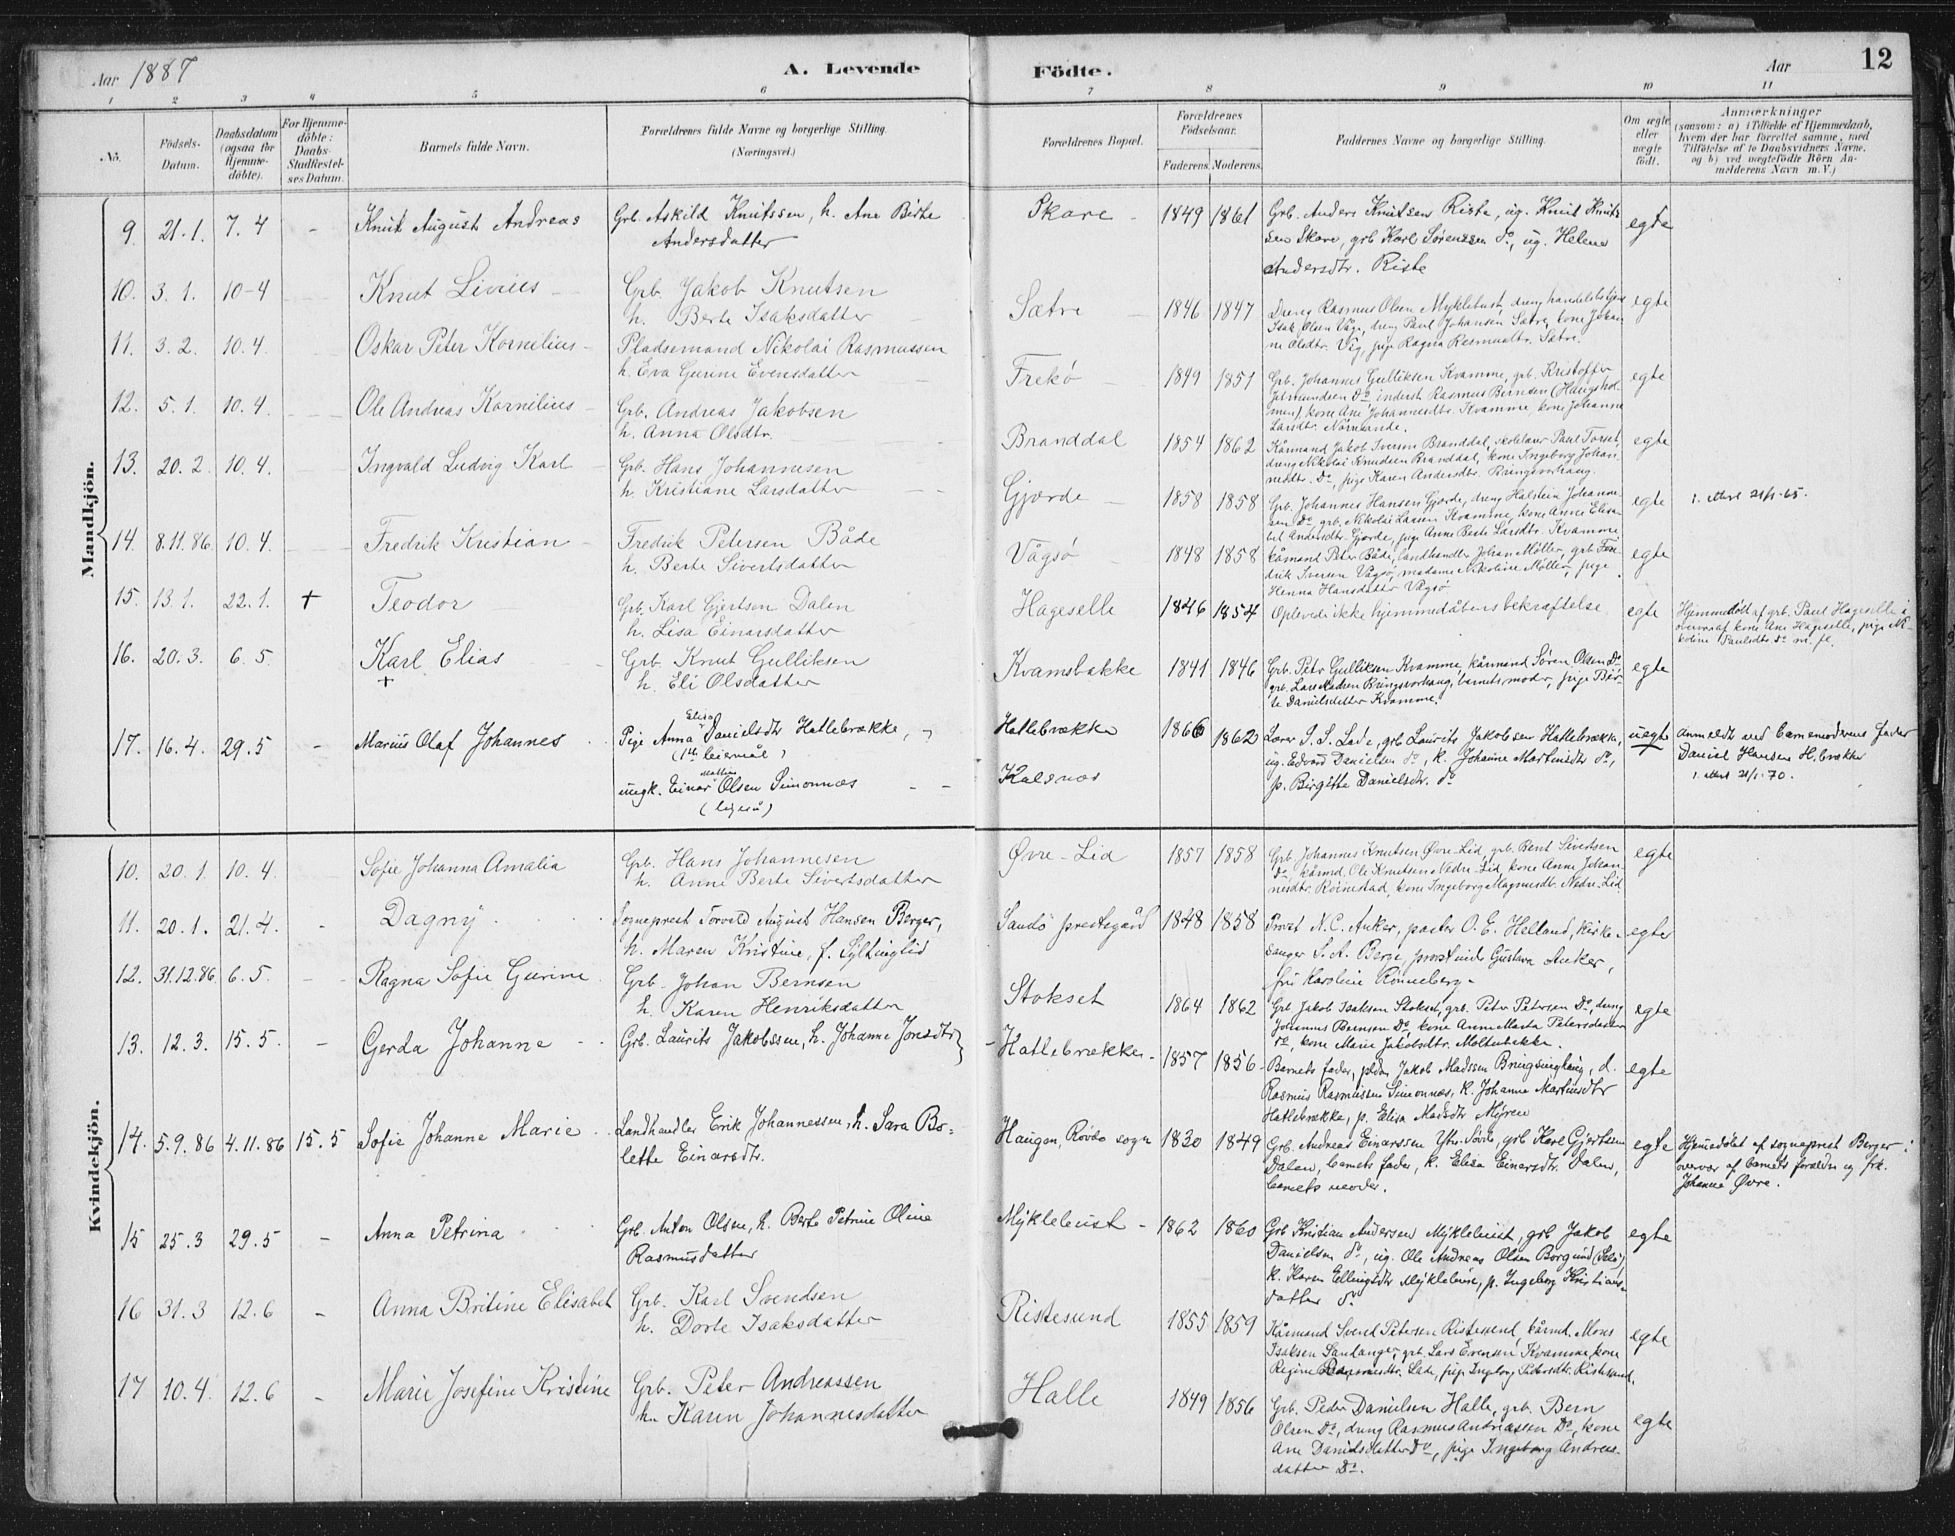 Aar 1887 A. Levende Födte. Aar 12
1 2 3 4 5 6 7 8 9 10 11
No. Födsels-Datum. Daabsdatum (ogsaa for Hjemmedöbte). For Hjemmedöbte: Daabs-Stadfestelses Datum. Barnets fulde Navn. Forældrenes fulde Navne og borgerlige Stilling. (Næringsvei.) Forældrenes Bopæl. Forældrenes Födselsaar. Faderens. Moderens. Faddernes Navne og borgerlige Stilling. Om ægte eller uægte födt. Anmærkninger (saasom: a) i Tilfælde af Hjemmedaab, hvem der har forrettet samme, med Tilföielse af to Daabsvidners Navne, og b) ved uægtefödte Börn Anmelderens Navn m. V.)
Mandkjön.
9. 21.1. 7.4 - Knut August Andreas Grb. Askild Knutssen, h. Ane Birte Skare - 1849 1861 Grb. Anders Knutsen Riste, ug. Knut Knuts egte
Andersdatter sen Skare, grb Karl Sørenssen do, ug. Helene
Andersdtr. Riste
10. 3.1. 10-4 Knut Livius Grb. Jakob Knutsen Sætre 1846 1847 Dreng Rasmus Olsen Myklebust, dreng handelsbetjent egte
h. Berte Isaksdatter Isak Olsen Våge, dreng Paul Johansen Sætre, kone Johan
ne Olsdtr. Vig, pige Ragna Rasmusdtr. Sætre.
11. 3.2. 10.4. Oskar Peter Kornelius Pladsemand Nikolai Rasmussen Frekø 1849 1851 Grb. Johannes Gulliksen Kvamme, grb. Kristoffer egte
h. Eva Gurine Evensdatter Do, inderst Rasmus Berntsen (Haugshol
men), kone Ane Johannesdtr. Kvamme, kone Johanne
Larsdtr.
12. 5.1. 10.4. Ole Andreas Kornelius Grb. Andreas Jakobsen Branddal 1854 1862 Kårmand Jakob Iversen Branddal, skolelærer Paul Torset, egte
h. Anna Olsdtr. dreng Nikolai Knudsen Branddal, kone Ingeborg Johan
nesdtr. Do, pige Karen Andersdtr. Bringsvorhaug.
13. 20.2. 10.4. Ingvald Ludvig Karl Grb. Hans Johannesen Gjerde 1858 1858 Grb. Johannes Hansen Gjerde, dreng Halstein Johanne egte 1. Attest 21/1-65.
h. Kristiane Larsdatter sen Do, grb. Nikolai Lassen Kvamme, kone Anne Elisa
bet Andersdtr. Gjerde, pige Anne Berte Larsdtr. Kvamme
14. 8.11.86. 10.4. Fredrik Kristian Fredrik Petersen Både Vågsø 1848 1858 Kårmand Peter Både, landhandler Johan Møller, grb. Fre egte
h. Berte Sivertsdatter drik Iversen Vågsø, madame Nikoline Møller, pige
Henna Hansdatter Vågsø
15. 13.1. 22.1. + Teodor Grb. Karl Gjertsen Dalen Hageselle 1846 1854 Oplevede ikke hjemmedåbens bekræftelse. egte Hjemmedøbt af grb. Paul Hageselle i
h. Lisa Einarsdatter overvær af kone Ane Hageselle, pige Ni-
koline Paulsdtr do m. fl.
16. 20.3. 6.5. Karl Elias Grb. Knut Gulliksen Kvamsbakke 1841 1846 Grb. Peter Gulliksen Kvamme, kårmand Søren Olsen Do, egte
+ h. Eli Olsdatter grb. Lars Madsen Bringsvorhaug, barnets moder, pige Bir-
te Danielsdatter Kvamme.
17. 16.4. 29.5 - Marius Olaf Johannes Pige Anna Elisa Danielsdtr Hatlebrække, Hatlebrække 1866 1862 Lærer S. S. Lade, grb Laurits Jakobsen Hatlebrække, uegte Anmeldt ved barnemoderens fader
(1ste leiermål) ug. Edvard Danielsen do, k. Johanne Martinsdtr do, Daniel Hansen H.brække
ungk. Einar Mattias Olsen Simonnæs Kalsnæs p. Birgitte Danielsdtr. do 1. Attest 21/1-70.
(ligeså)
Kvindekjön.
10. 20.1. 10.4. Sofie Johanna Amalia Grb. Hans Johannesen Øvre-Lid 1857 1858 Grb. Johannes Knutsen Øvre-Lid, grb. Bent Sivertsen egte
h. Anne Berte Sivertsdatter Do, kårmd. Ole Knutsen Nedre-Lid, kone Anne Johan
nesdtr. Röinestad, kone Ingeborg Magnusdtr. Nedre-Lid
11. 20.1. 21.4. - Dagny Sogneprest Torvald August Hansen Berger, Sandø prestegård 1848 1858 Provst N. C. Anker, pastor O. E. Helland, kirke- egte
h. Maren Kristine, f. Syltinglid sanger S. A. Berge, provstinde Gustava Anker,
frk Karoline Rönneberg.
12. 31.12.86 6.5. - Ragna Sofie Gurine Grb. Johan Bernsen Stokset 1864 1862 Grb Jakob Isaksen Stokset, grb. Peter Petersen Do, dreng egte
h. Karen Henriksdatter Johannes Bernsen Do, kone Anne Marta Petersdatter
Do, kone Marie Jakobsdtr. Moltubakke.
13. 12.3. 15.5. - Gerda Johanne Grb. Laurits Jakobssen, h. Johanne Jonsdtr - Hatlebrække - 1857 1856 Barnets fader, Jakob Madssen Bringsinghaug, d. egte
Rasmus Rasmussen Simonnæs, k. Johanne Martinsdtr
Hatlebrække, p. Elisa Madsdtr Myren
14. 5.9.86 4.11.86 15.5 Sofie Johanne Marie Landhandler Erik Johannessen, h. Sara Bo- Haugen, Rovde sogn 1830 1849 Grb. Andreas Einarssen Ytr. Sövde, grb Karl Gjertssen egte Hjemmedøbt af sogneprest Berger i
lette Einarsdtr. Dalen, barnets fader, k. Elisa Einarsdtr. Dalen, overvær af barnets forældre og frk.
barnets moder. Johanne Øvre.
15 25.3 29.5 - Anna Petrina Grb. Anton Olsen, h. Berte Petrine Oline Myklebust - 1862 1860 Grb Kristian Andersen Myklebust, grb Jakob egte
Rasmusdatter Danielsen do, ug. Ole Andreas Olsen Borgund,
k. Karen Ellingsdtr Myklebust, p. Ingeborg Kristians-
datter do
16 31.3 12.6 - Anna Britine Elisabet Grb. Karl Svendsen Ristesund 1855 1859 Kårmand Svend Petersen Ristesund, kårmd. Mons egte
h. Dorte Isaksdatter Isaksen Sandanger, grb. Lars Evensen Kvamme, kone
Regine Rasmusdtr. Lade, pige Ingeborg Pedersdtr. Ristesund.
17 10.4. 12.6 - Marie Josefine Kristine Grb. Peter Andreassen Halle 1849 1856 Grb. Peder Danielsen Halle, grb. Bern egte
h. Karen Johannesdatter Olsen Do, dreng Rasmus Andreassen Do, kone
Ane Danielsdatter Do, pige Ingeborg Andreas-
datter Do.